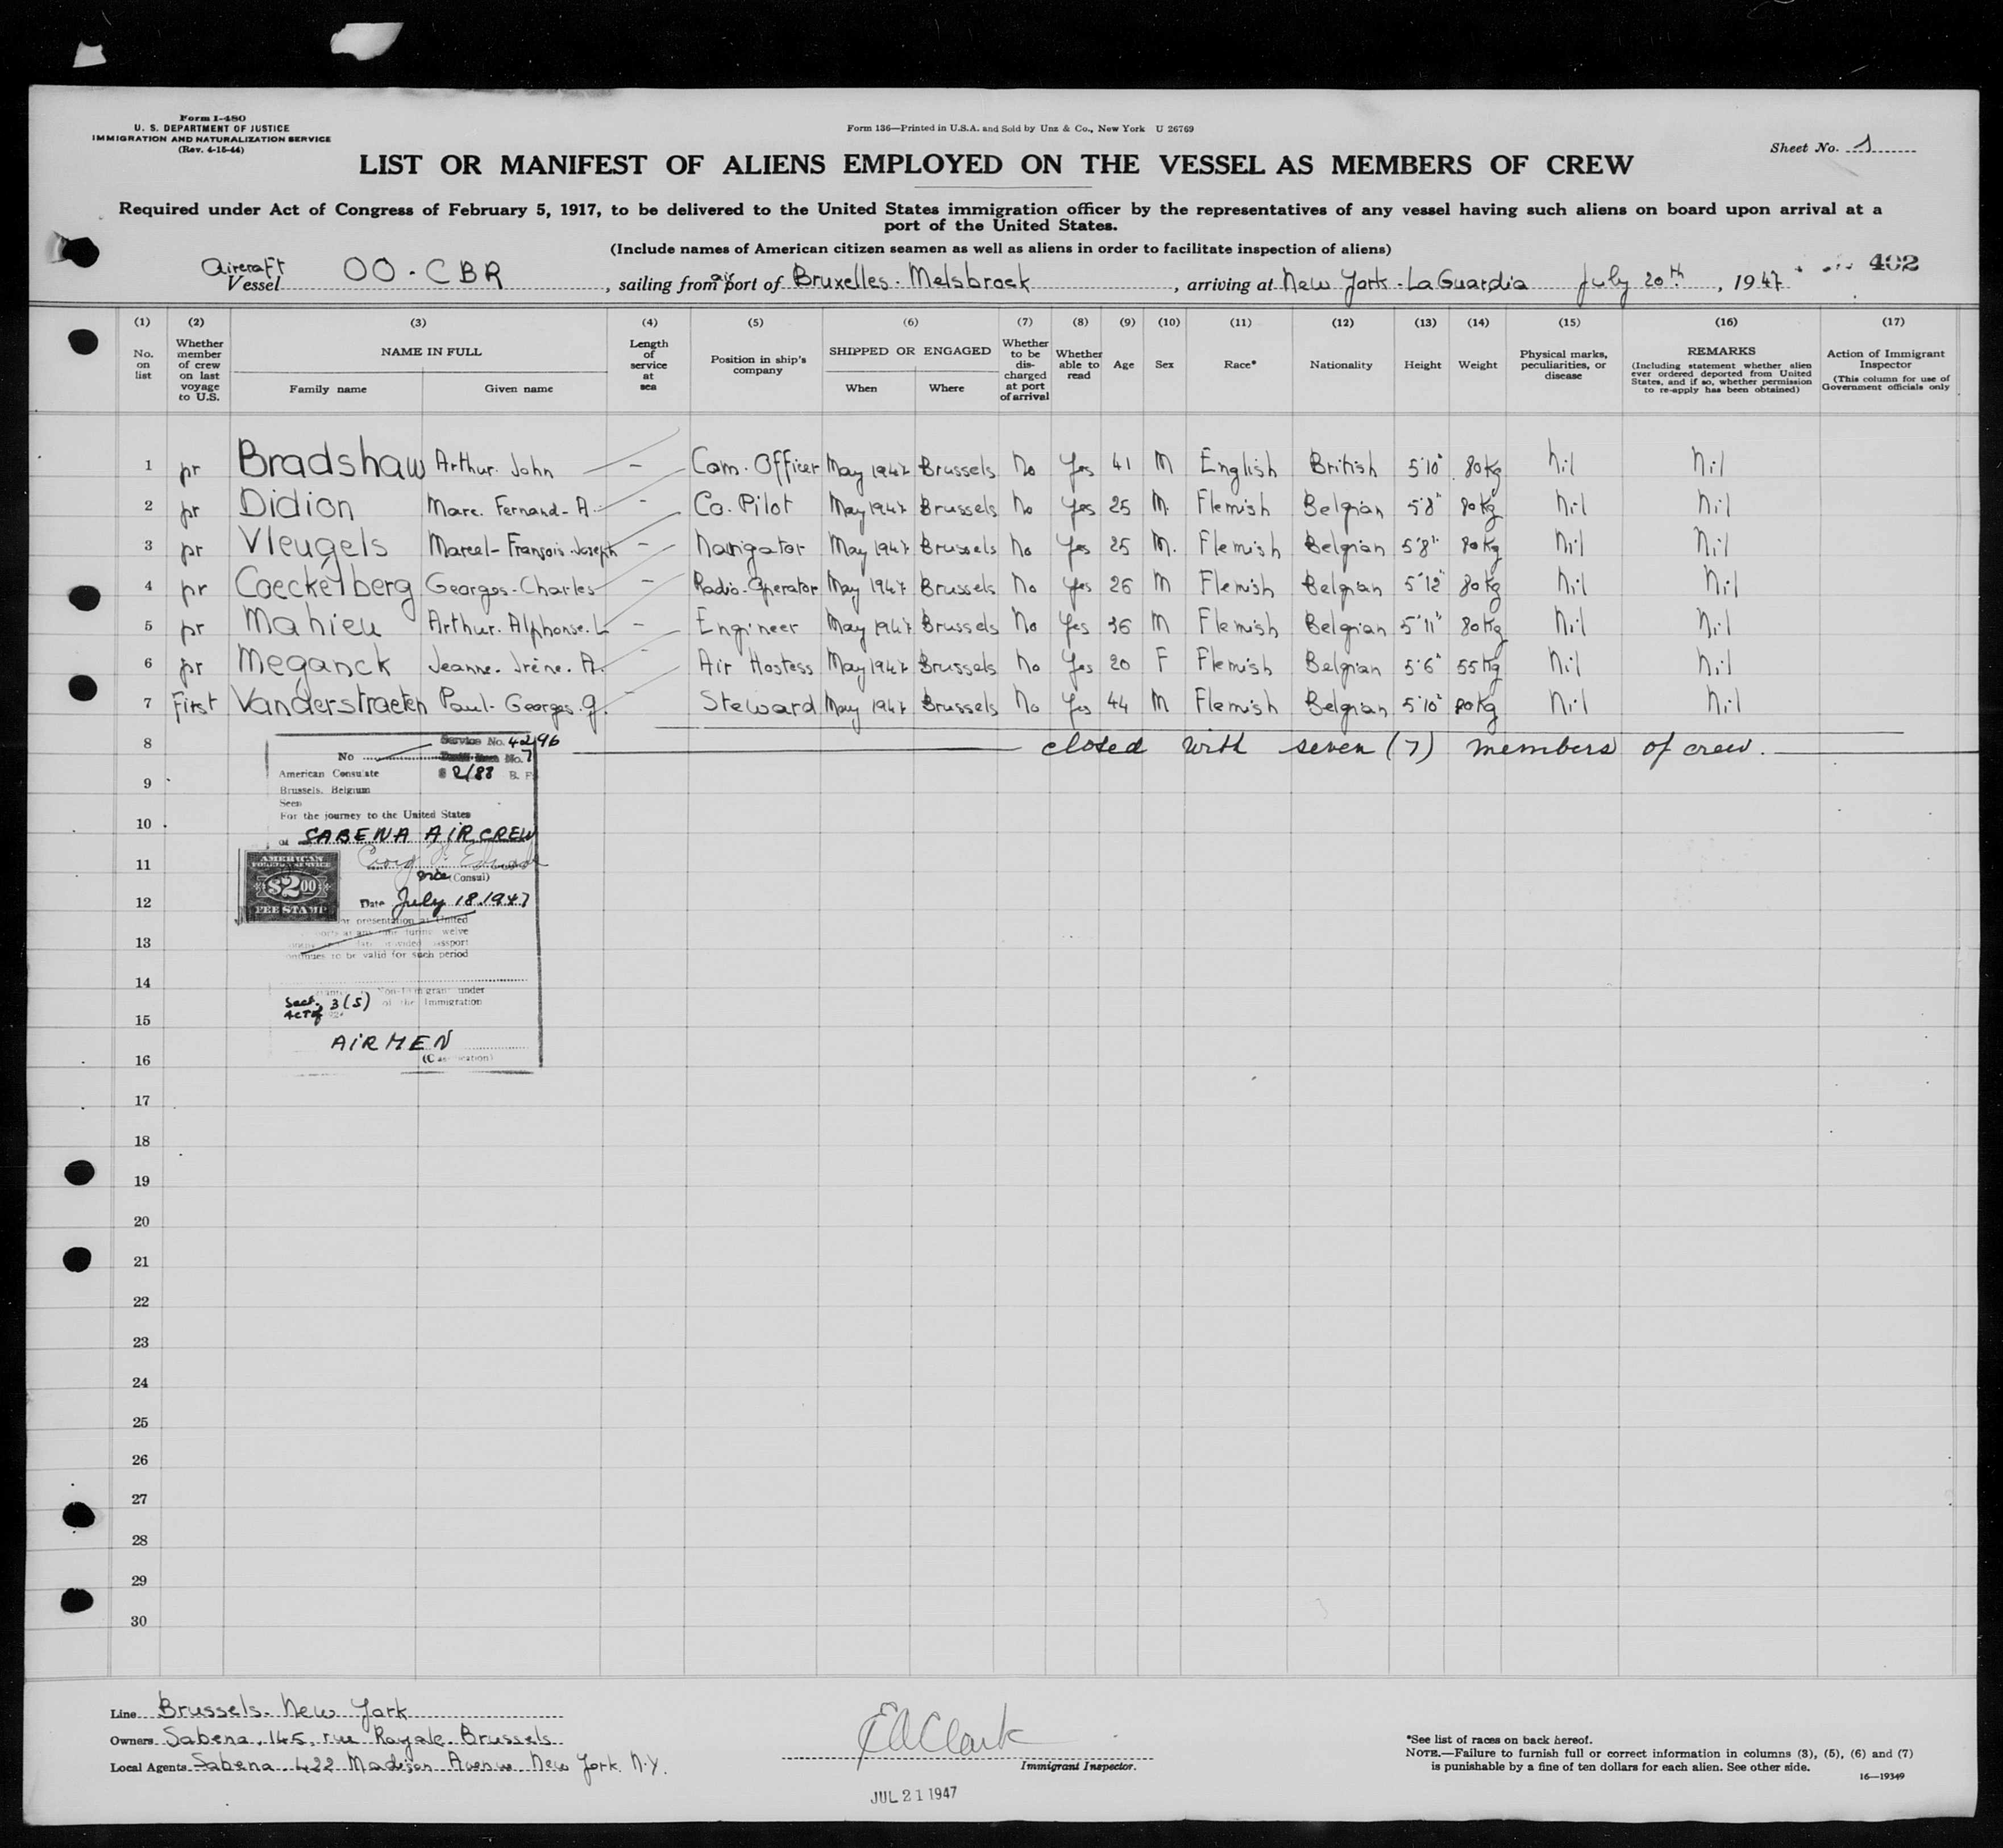 Form I-480
U. S. DEPARTMENT OF JUSTICE
IMMIGRATION AND NATURALIZATION SERVICE
(Rev. 4-15-44)
Form 136—Printed in U.S.A. and Sold by Unz & Co., New York U 26769
Sheet No. 1
LIST OR MANIFEST OF ALIENS EMPLOYED ON THE VESSEL AS MEMBERS OF CREW
Required under Act of Congress of February 5, 1917, to be delivered to the United States immigration officer by the representatives of any vessel having such aliens on board upon arrival at a
port of the United States.
(Include names of American citizen seamen as well as aliens in order to facilitate inspection of aliens)
402
Aircraft
Vessel OO-CBR, sailing from air port of Bruxelles-Melsbroek, arriving at New York-LaGuardia July 20th, 1947
(1) (2) (3) (4) (5) (6) (7) (8) (9) (10) (11) (12) (13) (14) (15) (16) (17)
No. on list
Whether member of crew on last voyage to U.S.
NAME IN FULL
Family name Given name
Length of service at sea
Position in ship's company
SHIPPED OR ENGAGED
When Where
Whether to be discharged at port of arrival
Whether able to read
Age
Sex
Race*
Nationality
Height
Weight
Physical marks, peculiarities, or disease
REMARKS
(Including statement whether alien ever ordered deported from United States, and if so, whether permission to re-apply has been obtained)
Action of Immigrant Inspector
(This column for use of Government officials only
1 pr Bradshaw Arthur. John - Com. Officer May 1947 Brussels No Yes 41 M English British 5'10" 80kg Nil Nil
2 pr Didion Marc. Fernand-A. - Co. Pilot May 1947 Brussels No Yes 25 M. Flemish Belgian 5'8" 80kg Nil Nil
3 pr Vleugels Marcel-François-Joseph - Navigator May 1947 Brussels No Yes 25 M. Flemish Belgian 5'8" 80kg Nil Nil
4 pr Caeckelberg Georges-Charles - Radio-Operator May 1947 Brussels No Yes 26 M Flemish Belgian 5'12" 80kg Nil Nil
5 pr Mahieu Arthur. Alphonse. L - Engineer May 1947 Brussels No Yes 36 M Flemish Belgian 5'11" 80kg Nil Nil
6 pr Meganck Jeanne. Irène. A. - Air Hostess May 1947 Brussels No Yes 20 F Flemish Belgian 5'6" 55kg Nil Nil
7 First Vanderstraeten Paul-Georges. G. - Steward May 1947 Brussels No Yes 44 M Flemish Belgian 5'10" 80kg Nil Nil
8 closed with seven (7) members of crew.
9
10
11
12
13
14
15
16
17
18
19
20
21
22
23
24
25
26
27
28
29
30
Service No. 4296
No
No. 7
American Consulate
Brussels, Belgium
Seen
For the journey to the United States
of SABENA AIRCREW
AMERICAN
FOREIGN SERVICE
$2.00
FEE STAMP
Vice (Consul)
Date July 18.1947
or presentation at United
continues to be valid for such period
Non-Immigrant under
Sect. 3(5) of the Immigration
Act of
AIRMEN
Line Brussels-New York
Owners Sabena, 145, rue Royale. Brussels
Local Agents Sabena. 422 Madison Avenue New York. N.Y.
EAClark
Immigrant Inspector.
JUL 21 1947
*See list of races on back hereof.
NOTE.—Failure to furnish full or correct information in columns (3), (5), (6) and (7)
is punishable by a fine of ten dollars for each alien. See other side.
16—19349